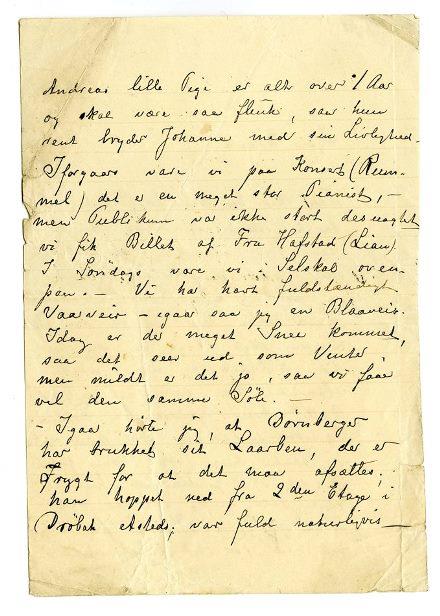 Andreas lille Pige er alt over 1 Aar
og skal være saa flink, saa hun
rent bryder Johanne med sin Livlighed.
Iforgaars vare vi paa Konsert (Rum-
mel) det er en meget stor Pianist, –
men Publikum var ikke stort desuagtet
vi fik Billet af Fru Hafstad (Lian)
I Søndags vare vi i Selskab oven-
paa. – Vi ha havt fuldstændigt
Vaarveir – igaar saa jeg en Blaaveis.
Idag er der meget Snee kommet,
saa det seer ud som Vinter,
men mildt er det jo, saa vi faae
vel den samme Søle. –
– Igaar hørte jeg, at Dørnberger
har brukket sit Laarben, der er
Frygt for at det maa afsættes;
han hoppet ned fra 2den Etage i
Drøbak etsteds; var fuld naturligvis –